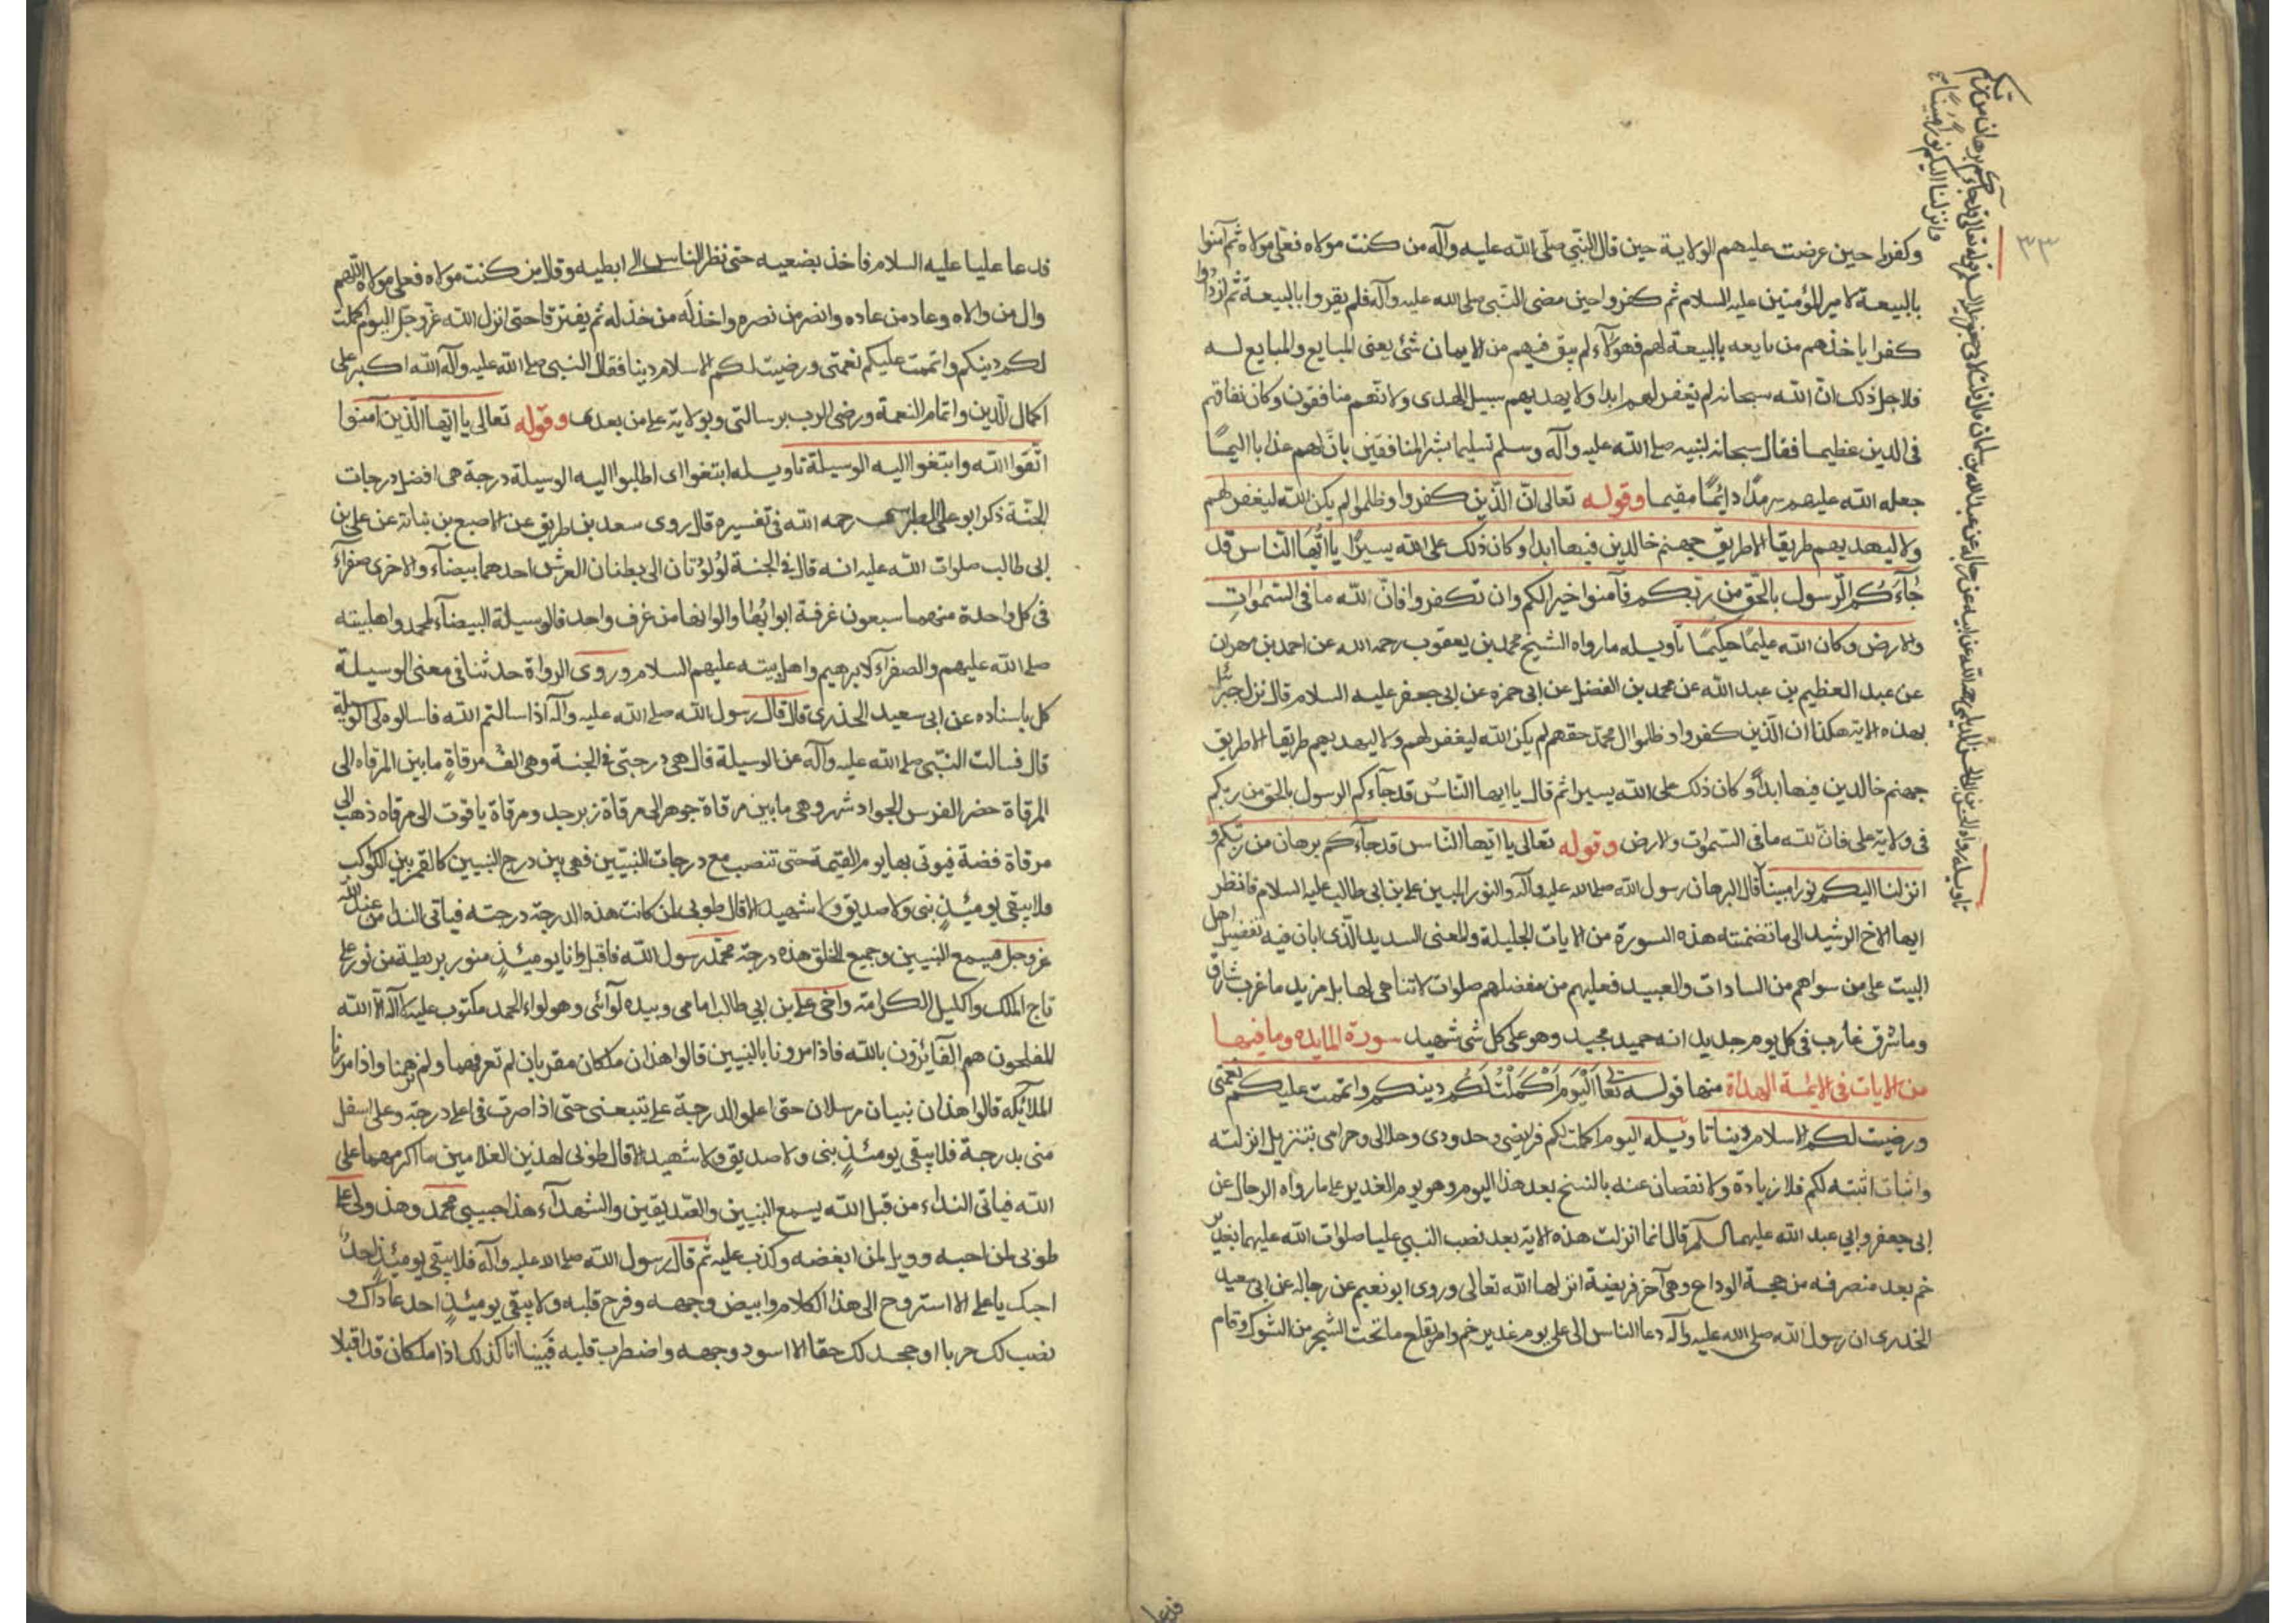 وكفروا حين عرضت عليهم الولاية حين قال النبي صلى الله عليه وآله من كنت مولاه فعلى مولاه ثم آمنوا
بالبيعة لامير المؤمنين عليه السلام ثم كفروا حين مضى النبي صلى الله عليه وآله فلم يقروا بالبيعة ثم ازدادوا
كفرا باخذهم من بايعه بالبيعة لهم فهؤلآء لم يبق فيهم من الايمان شئ يعنى المبايع والمبايع له
فلاجل ذلك ان الله سبحانه لم يغفر لهم ابدا ولا يهديهم سبيل الهدى ولانهم منافقون وكان نفاقهم
فى الدين عظيما فقال سبحانه لنبيه صلى الله عليه وآله وسلم تسليما بشر المنافقين بان لهم عذابا اليمًا
جعله الله عليهم سرمدًا دائمًا مقيما وقوله تعالى انّ الّذين كفروا وظلموا لم يكن الله ليغفر لهم
ولا ليهديهم طريقا الا طريق جهنم خالدين فيها ابدا وكان ذلك على الله يسيرًا يا ايّها النّاس قد
جَآءَكُم الرّسول بالحَقّ من ربّكم فآمنوا خيرا لكم وان تكفروا فانّ لله ما فى السّمٰواتِ
والارض وكان الله عليمًا حكيمًا تاويله ما رواه الشيخ محمد بن يعقوب رحمه الله عن احمد بن مهران
عن عبد العظيم بن عبد الله عن محمد بن الفضل عن ابى حمزه عن ابى جعفر عليه السلام قال نزل جبرئل
بهذه الاية هكذا ان الّذين كفروا وظلموا ال محمد حقهم لم يكن الله ليغفر لهم ولا ليهديهم طريقا الا طريق
جهنم خالدين فيها ابدًا وكان ذلك على الله يسيرا ثم قال يا ايها النّاسُ قد جآءكم الرسول بالحق من ربّكم
فى ولاية على فانّ لله ما فى السّمٰوت والارض وقوله تعالى يا ايّها النّاس قد جآءكم برهان من ربّكم و
انزلنا اليكم نورا مبيناً قال البرهان رسول الله صلى الله عليه وآله والنور المبين على بن ابى طالب عليه السلام فانظر
ايها الاخ الرشيد الى ما تضمنته هذه السورة من الايات الجليلة والمعنى السديد الّذى ابان فيه تفضيل اهل
البيت على من سواهم من السادات والعبيد فعليهم من مفضلهم صلوات لا تناهى لها بل مزيد ما غرب شارق
وما شرق غارب فى كل يوم جديد انه حميد مجيد وهو على كل شئ شهيد سورة المايده وما فيها
من الايات فى الائمة الهداة منها قوله تعا اَلْيَومَ اَكْمَلْتُ لَكُم دينكم واتممت عليكم نعمتى
ورضيت لكم الاسلام دينا تاويله اليوم اكملت لكم فرايضى وحدودى وحلالى وحرامى بتنزيل انزلته
واثبات اثبته لكم فلا زيادة ولا نقصان عنه بالنسخ بعد هذا اليوم وهو يوم الغدير على ما رواه الرجال عن
ابى جعفر وابي عبد الله عليهما السلم قال انما انزلت هذه الاية بعد نصب النبى عليا صلوات الله عليهما بغدير
خم بعد منصرفه من حجة الوداع وهى آخر فريضة انزلها الله تعالى وروى ابو نعيم عن رجاله عن ابى سعيد
الخدرى ان رسول الله صلى الله عليه وآله دعا الناس الى على يوم غدير خم وامر بقلع ما تحت الشجر من الشوك وقام
فدعا
٣٣
وانزلنا اليكم نورا مبينا
فدعا عليا عليه السلام فاخذ بضعيه حتى نظر الناس الى ابطيه وقال من كنت مولاه فعلى مولاه اللّهم
وال من والاه وعاد من عاده وانصر من نصره واخذل من خذله ثم يفترقا حتى انزل الله عزّ وجلّ اليوم اكملت
لكم دينكم واتممت عليكم نعمتى ورضيت لكم الاسلام دينا فقال النبى صلى الله عليه وآله الله اكبر على
اكمال الدين واتمام النعمة ورضى الرب برسالتى وبولاية على من بعدى وقوله تعالى يا ايّها الّذين آمنوا
اتّقوا الله وابتغوا اليه الوسيلة تاويله ابتغوا اى اطلبوا اليه الوسيلة درجة هى افضل درجات
الجنّة ذكر ابو على الطبرسى رحمه الله فى تفسيره قال روى سعد بن طريق عن الاصبع بن نباتة عن على بن
ابى طالب صلوات الله عليه انه قال فى الجنة لؤلؤتان الى بطنان العرش احدهما بيضآء والاخرى صفرآء
فى كل واحدة منهما سبعون غرفة ابوابُها والوانها من غرف واحد فالوسيلة البيضآء لمحمد واهلبيته
صلى الله عليهم والصفرآء لابرهيم واهل بيته عليهم السلام وروى الرواة حدثنا فى معنى الوسيلة
كل باسناده عن ابى سعيد الخدرى قال قال رسول الله صلى الله عليه وآله اذا سالتم الله فاسالوه لى الوسيلة
قال فسالت النّبى صلى الله عليه وآله عن الوسيلة قال هى درجتى فى الجنة وهى الف مرقاةٍ ما بين المرقاه الى
المرقاة حضر الفرس الجواد شهر وهى ما بين مرقاة جوهر الى مرقاة زبرجد ومرقاة ياقوت الى مرقاه ذهب الى
مرقاة فضة فيوتى بها يوم القيمة حتى تنصب مع درجات النبيّين فهى بين درج النبيين كالقمر بين الكواكب
فلا يبقى يومئذٍ نبى ولا صديق ولا شهيد الا قال طوبى لمن كانت هذه الدرجة درجته فياتى الندا من عند الله
عز وجل فيسمع النبيين وجميع الخلق هذه درجة محمّد رسول الله فاقبل وانا يومئذٍ منور بريطة من نور على
تاج الملك واكليل الكرامة واخى على بن ابي طالب امامى وبيده لوآئى وهو لواء الحمد مكتوب عليه لا اله الا الله
المفلحون هم الفآئزون بالله فاذا مرونا بالنبيين قالوا هذان ملكان مقربان لم تعرفهما ولم نرهما واذا مررنا
الملائكه قالوا هذان نبيان مرسلان حتى اعلو الدرجة على يتبعنى حتى اذا صرت فى اعلا درجة وعلى اسفل
منى بدرجة فلا يبقى يومئذٍ نبى ولا صديق ولا شهيد الا قال طوبى لهذين الغلامين ما اكرمهما على
الله فياتى النداء من قبل الله يسمع النبيين والصّديقين والشهدآء هذا حبيبى محمّد وهذ ولى على
طوبى لمن احبه وويل لمن ابغضه وكذب عليه ثم قال رسول الله صلى الله عليه وآله فلا يبقى يومئذٍ احدٌ
احبك يا على الا استروح الى هذا الكلام وابيض وجهه وفرح قلبه ولا يبقى يومئذٍ احد عاداك و
نصب لك حربا او جحد لك حقا الا اسود وجهه واضطرب قلبه فبينا انا كذلك اذا ملكان قد اقبلا